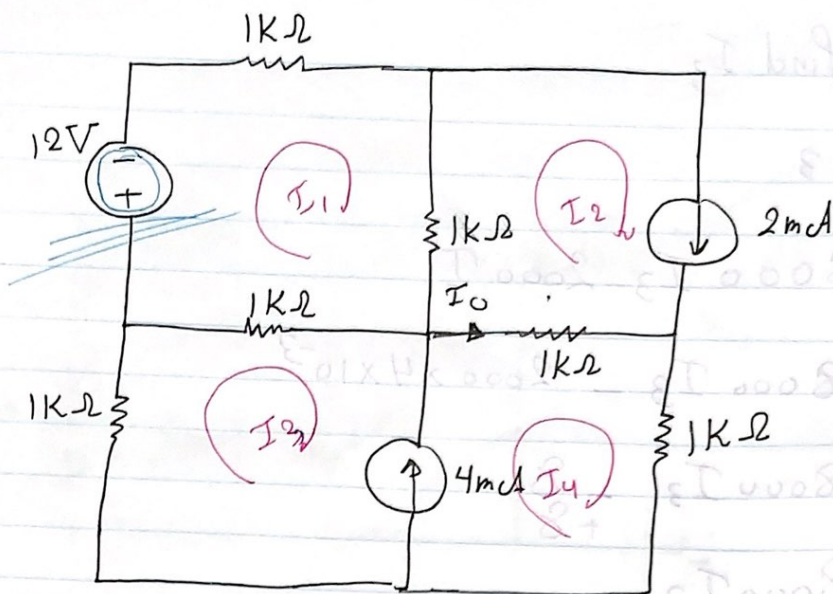 1KΩ
12V
I1
I2
2mA
1KΩ
1KΩ
I0
1KΩ
1KΩ
I3
4mA
I4
1KΩ